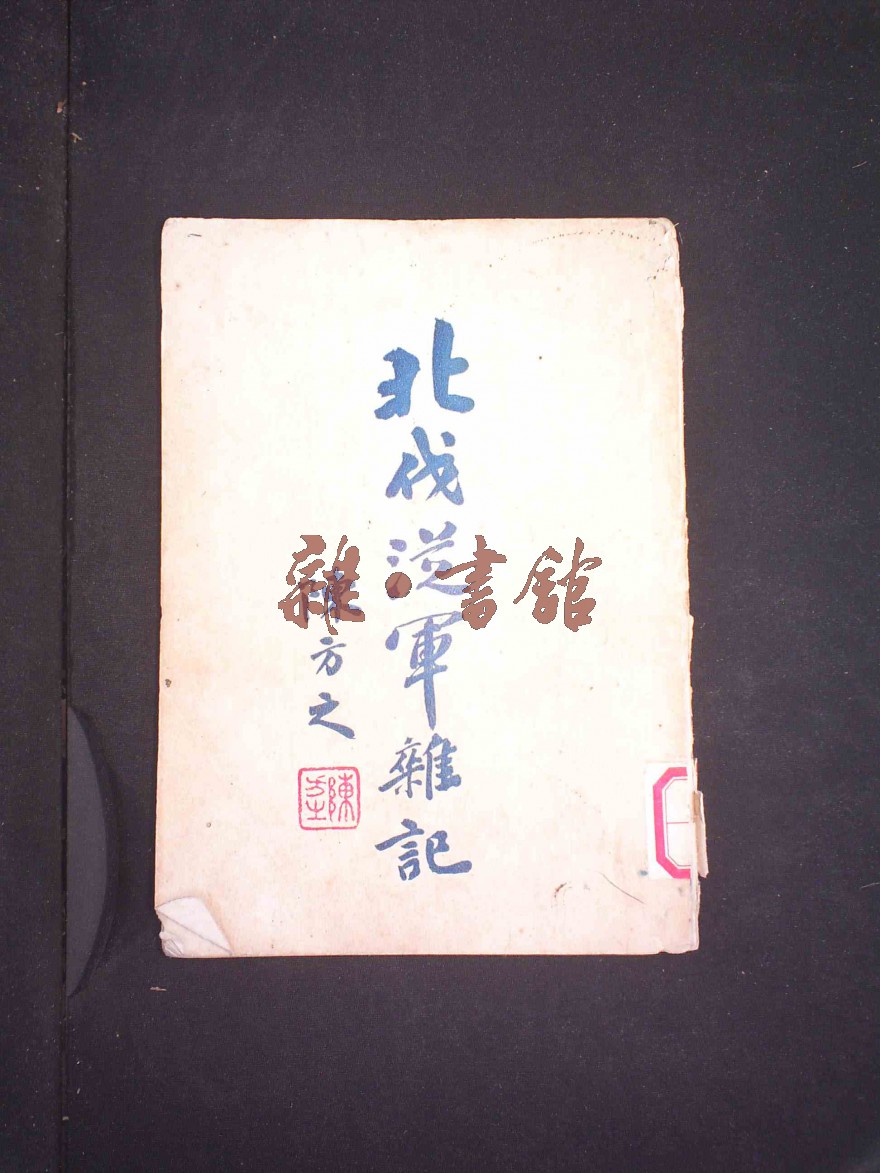 北伐從軍雜記
陳方之
陳
雜·書館